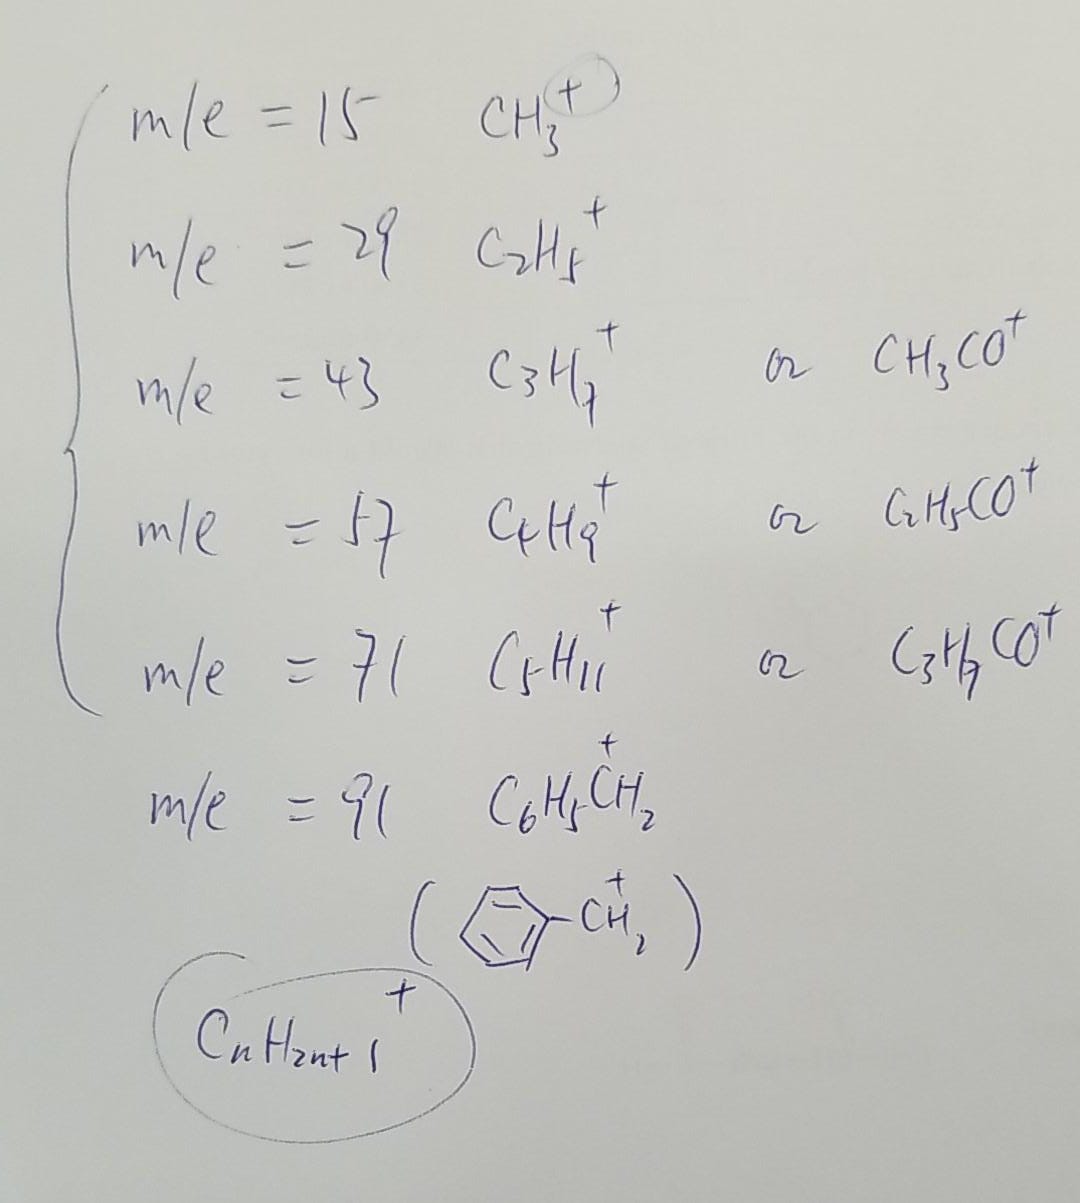 m/e = 15 CH₃⁺
m/e = 29 C₂H₅⁺
m/e = 43 C₃H₇⁺ or CH₃CO⁺
m/e = 57 C₄H₉⁺ or C₂H₅CO⁺
m/e = 71 C₅H₁₁⁺ or C₃H₇CO⁺
m/e = 91 C₆H₅C⁺H₂
( -C⁺H₂ )
CnH2n+1⁺